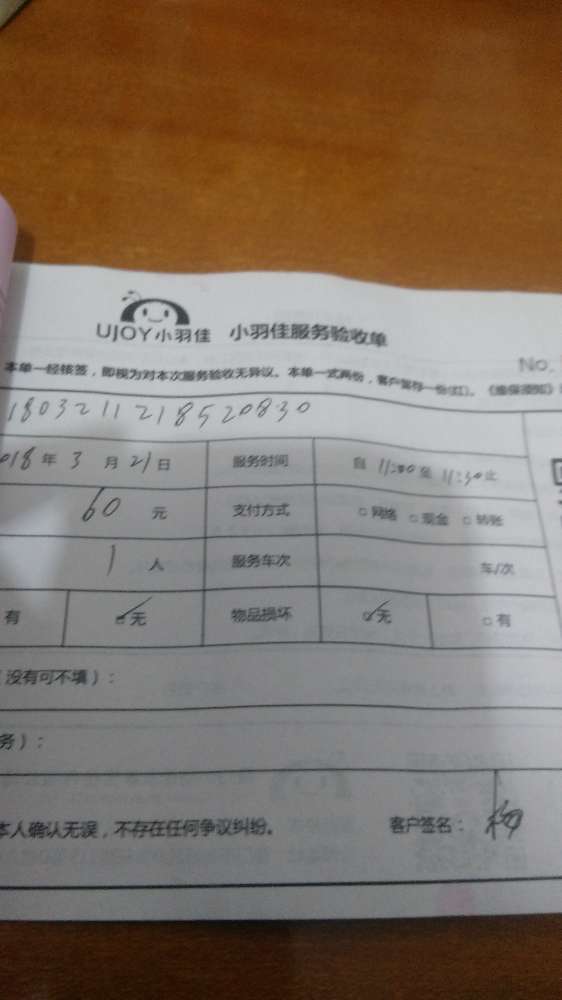 UJOY小羽佳 小羽佳服务验收单
No.
本单一经核签，即视为对本次服务验收无异议。本单一式两份，客户留存一份(红)。《维保须知》
1803211218520830
018年3月21日 服务时间 自 11:00 至 11:30 止
60 元 支付方式 □网络 □现金 □转账
1 人 服务车次 车/次
有 ☑无 物品损坏 ☑无 □有
（没有可不填）：
务）：
本人确认无误，不存在任何争议纠纷。 客户签名：杨